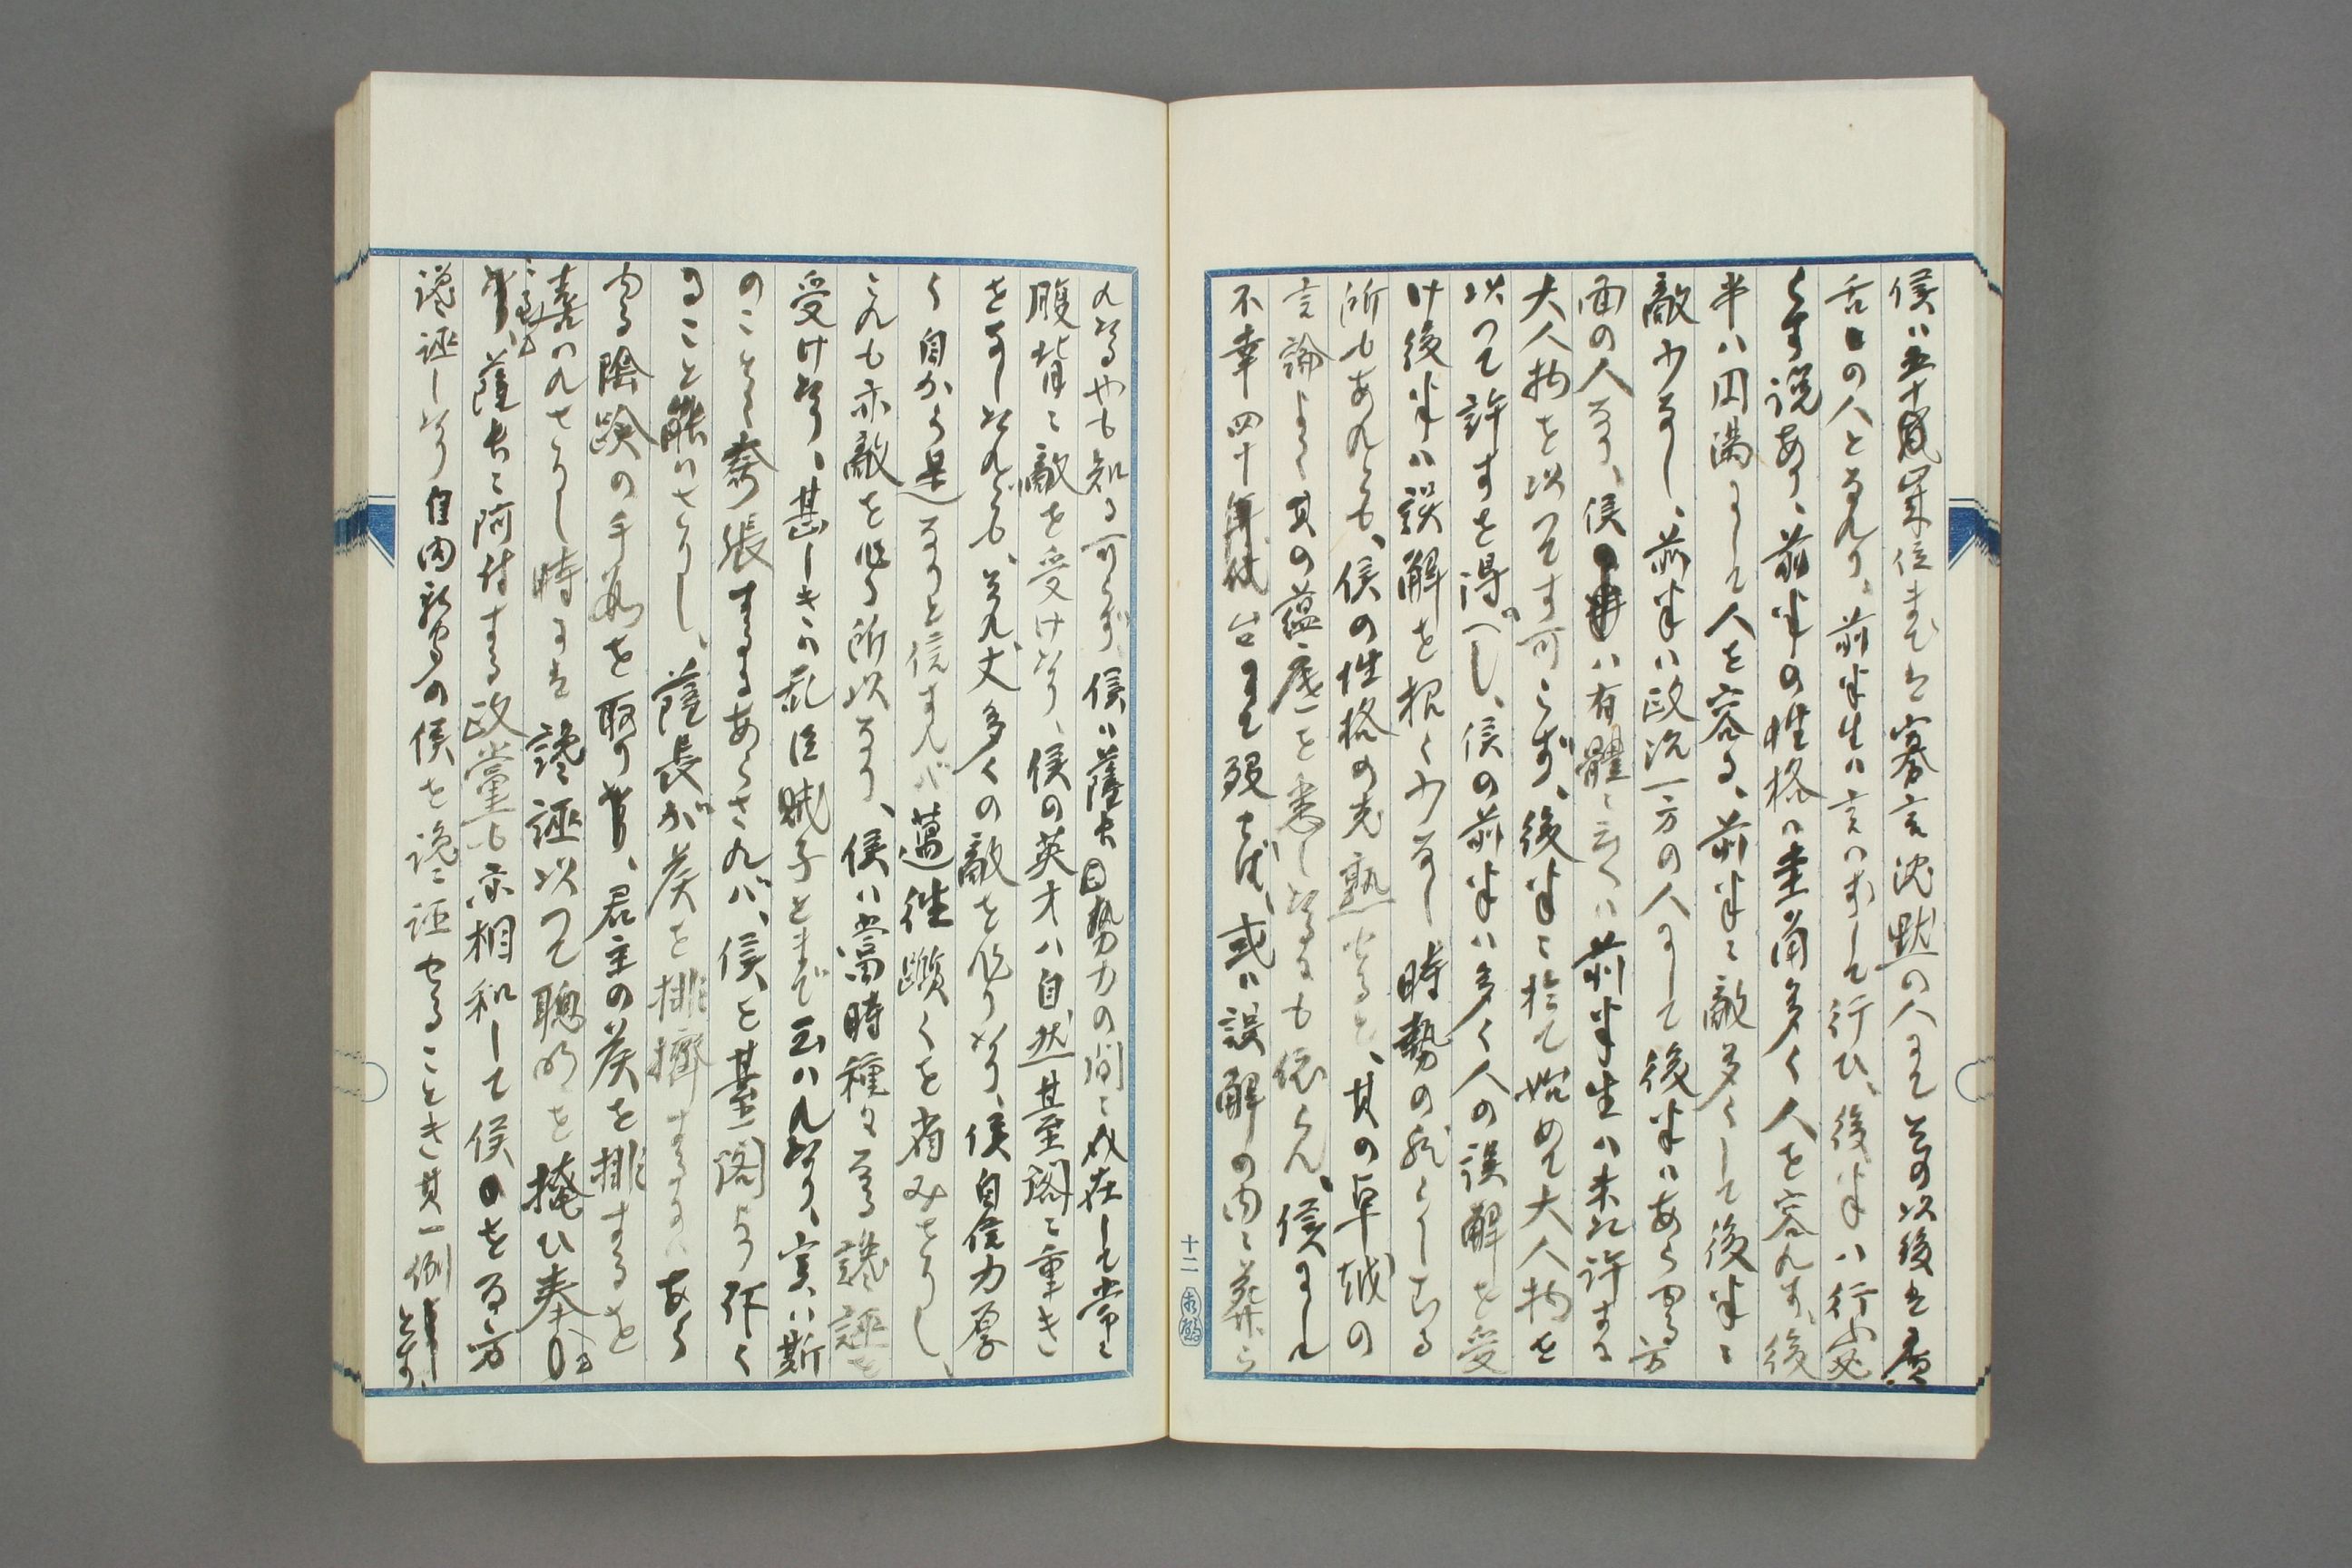 侯ハ五十歳位までは寡言沈黙の人にてその以後は唐
舌の人となれり、前半生ハ言ハずして行ひ、後半ハ行
らす説あり、前半の性格ハ圭角多く人を容れず、後
半ハ円満にして人を容る、前半に敵多くして後半に
敵少なし、前半ハ政治一方の人にして後半ハあらゆる方
面の人なり、侯ハ有体に云へハ前半生ハ未た許する
大人物を以つてす可らず、後半に於て始めて大人物を
以つて許すを得べし、侯の前半ハ多く人の誤解を受
け後半ハ誤解を招く少なし時勢の然らしむる
所もあれども、侯の性格の老熟せると、其の卓越の
言論よく其の蘊底を悉しせるにも依らん、侯にして
不幸四十年代にて歿せば、或は誤解の内に葬ら
れたるやも知る可らず、侯ハ薩長勢力の間に介在して常に
腹背に敵を受けたり、侯の英才ハ自然台閣に重き
をなしたれども、それ丈多くの敵を作りたり、侯自信力厚
く自から是なりと信ずれバ邁往躓くを省みざりし、
これも亦敵を作る所以なり、侯ハ当時種々なる讒誣を
受けたり、甚しきハ乱臣賊子とまで云ハれたり、実ハ斯
のことく誇張するにあらされバ、侯を台閣より斥く
ること能ハさりし、薩長が侯を排擠するにハあら
ゆる陰険の手段を取り、君主の侯を排するを
喜ハれさりし時にハ讒誣以つて聰明を掩ひ奉り
薩長に阿附する政党も亦相和して侯を
讒誣したり自由新聞の侯を讒誣せることき其一例とす、
十二